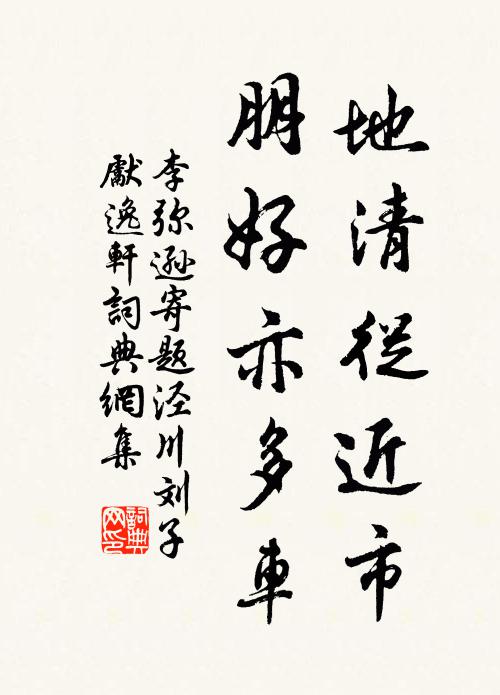 地清從近市
朋好亦多車
李弥遜寄题泾川刘子
獻逸軒詞典網集
詞典网印